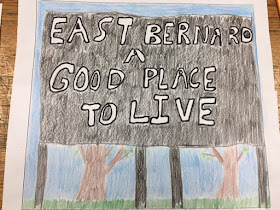 EAST BERNARD
A
GOOD PLACE
TO LIVE